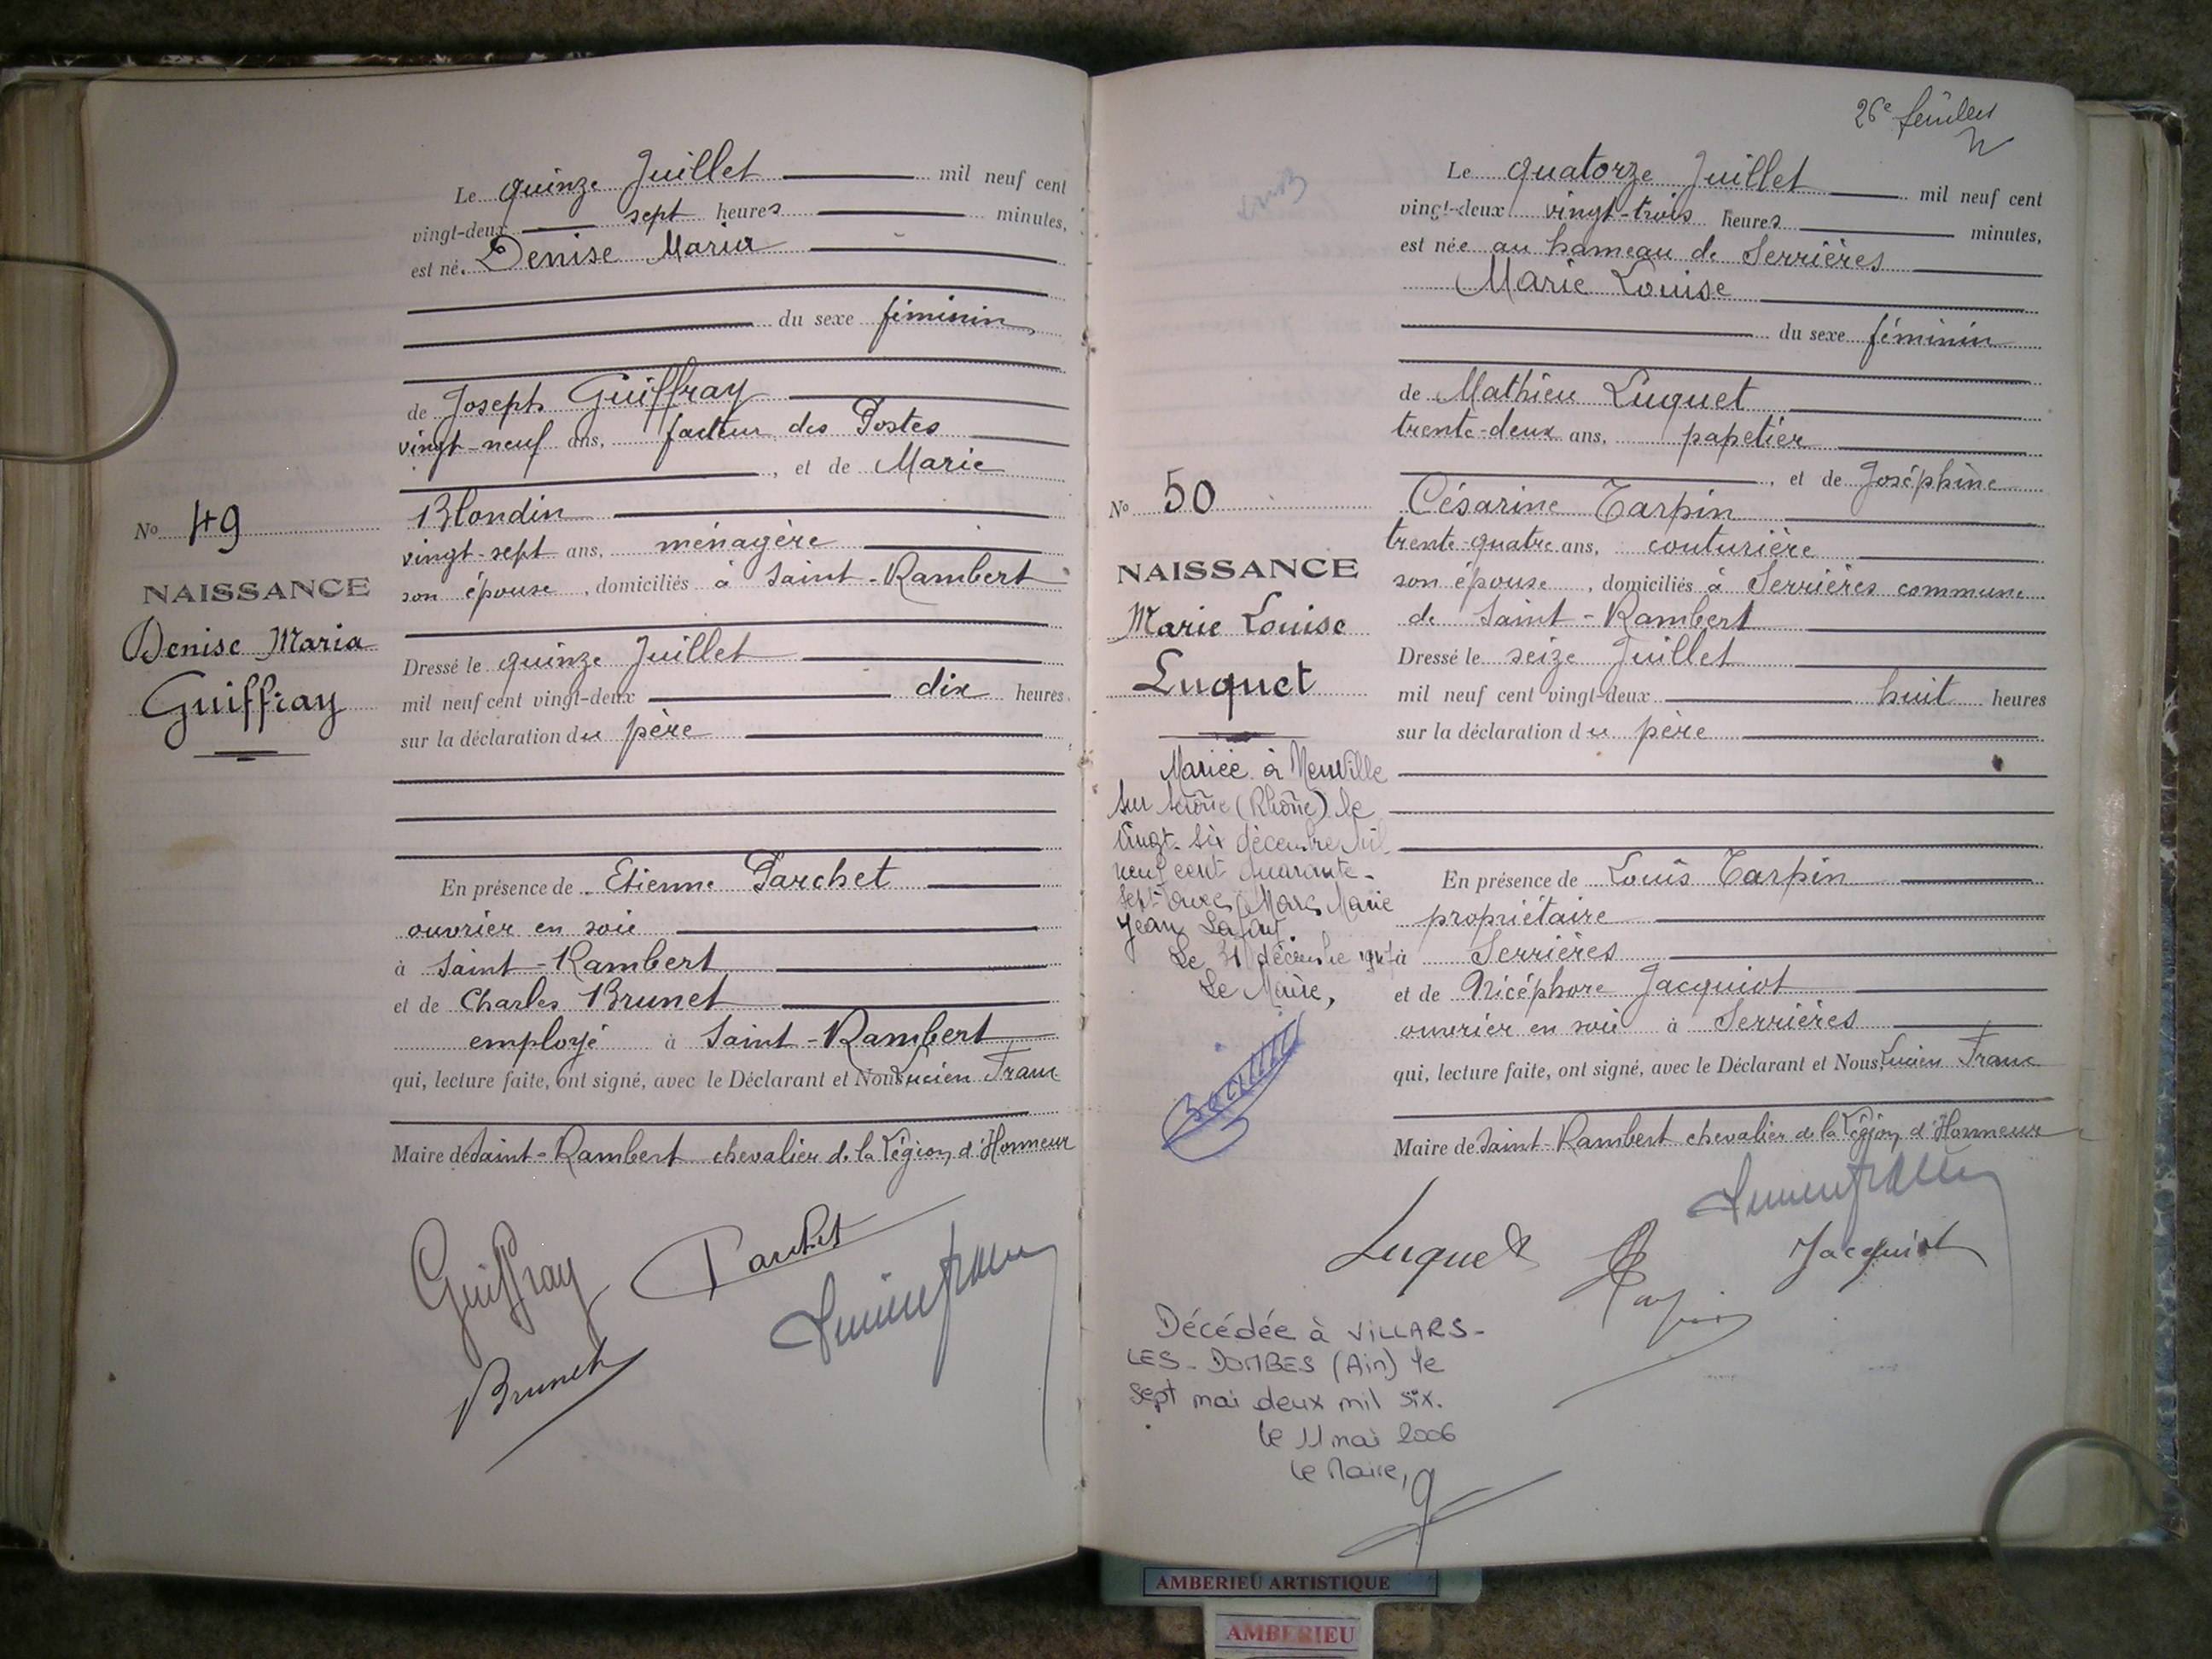 Le quinze Juillet mil neuf cent
vingt-deux sept heures minutes,
est né. Denise Maria
du sexe féminin
de Joseph Guiffray
vingt-neuf ans, facteur des Postes
, et de Marie
Blondin
vingt-sept ans, ménagère
son épouse, domiciliés à Saint-Rambert
No 49
NAISSANCE
Denise Maria
Guiffray
Dressé le quinze Juillet
mil neuf cent vingt-deux dix heures
sur la déclaration du père
En présence de Etienne Parchet
ouvrier en soie
à Saint-Rambert
et de Charles Brunet
employé à Saint-Rambert
qui, lecture faite, ont signé, avec le Déclarant et Nous Lucien Franc
Maire de Saint-Rambert chevalier de la Légion d'Honneur
Guiffray
Parchet
Brunet
26e
Le quatorze Juillet mil neuf cent
vingt-deux vingt-trois heures minutes,
est née au hameau de Serrières
Marie Louise
du sexe féminin
de Mathieu Luquet
trente-deux ans, papetier
, et de Joséphine
Césarine Tarpin
trente-quatre ans, couturière
son épouse, domiciliés à Serrières commune
de Saint-Rambert
No 50
NAISSANCE
Marie Louise
Luquet
Dressé le seize Juillet
mil neuf cent vingt-deux huit heures
sur la déclaration du père
Mariée à Neuville
sur Saône (Rhône) le
vingt-six décembre mil
neuf cent quarante-
sept avec Marc Marie
Jean
Le 31 décembre 1947
Le Maire,
En présence de Louis Tarpin
propriétaire
à Serrières
et de Nicéphore Jacquiot
ouvrier en soie à Serrières
qui, lecture faite, ont signé, avec le Déclarant et Nous, Lucien Franc
Maire de Saint-Rambert chevalier de la Légion d'Honneur
Luquet
Jacquiot
Décédée à VILLARS-
LES-DOMBES (Ain) le
sept mai deux mil six.
le 11 mai 2006
Le Maire,
AMBERIEU ARTISTIQUE
AMBERIEU